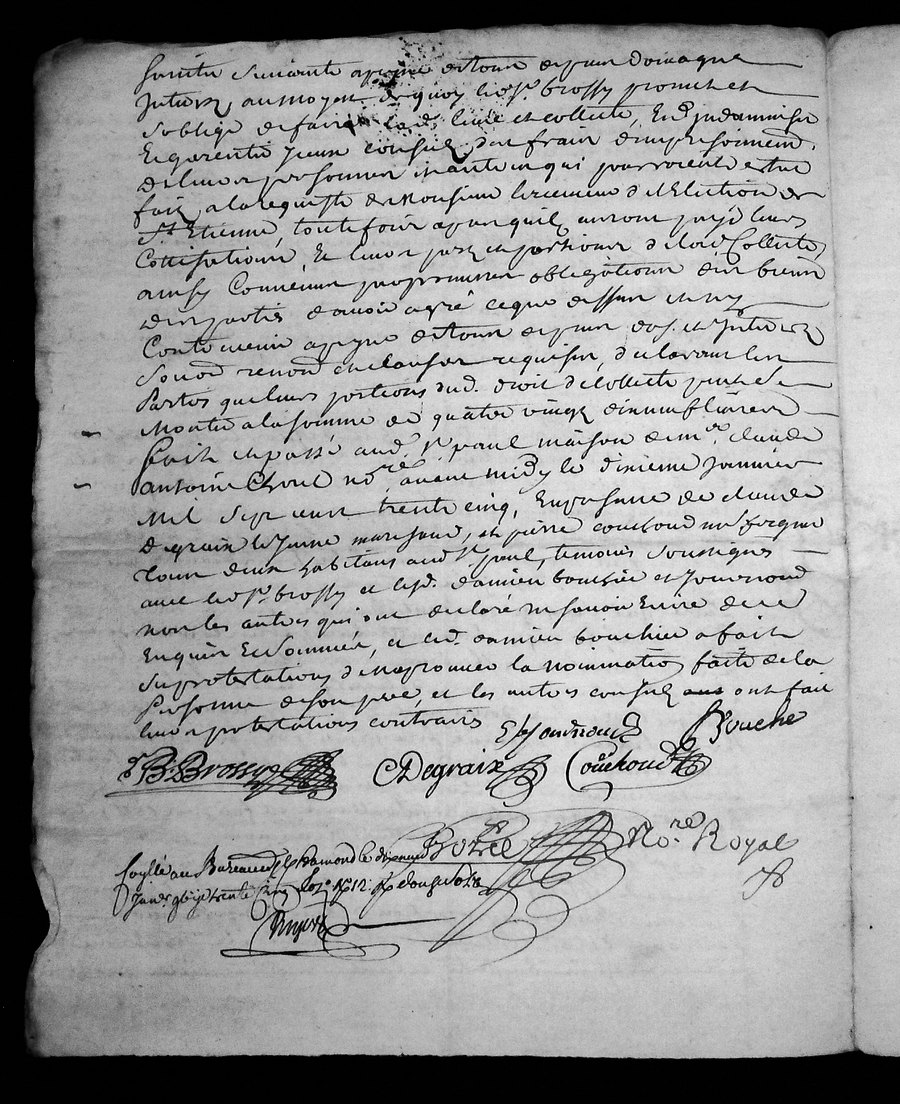 suivante a peine de tous depans domages
Interez, au moyen de quoy led. Sr. brossy promet et
soblige de faire lad. leuée et collecte, En d. indamniser
Et garentir Iceux consuls des frais demprisonnem.
de leurs personnes qui pourroient estre
fait a la requeste de Monsieur le receueur de lElection de
St. Etienne, toutefois apres quils auront payé leurs
Cottisations, Et leurs portions de lad. Collecte,
ainsy Conuenu par promesses obligations des biens
des parties dauoir agréé ce que dessus et ny
Contreuenir a peyne de tous depans do. et Interez
Soub. renon. et clauses requises, declarant les
Parties que leurs portions dud. droit de collecte peut se
Monter a la somme de quatre vingt dix neuf liures
fait et passé aud. St. paul maison de me. claude
antoine Choul nore. auant midy le dixieme Januier
Mil sept cent trente cinq, En presance de claude
Degraix le Jeune marchand, et pierre couchoud me forgeur
tous deux habitans aud. St. paul, temoins soussignés
auec led. Sr. brossy et led. damien bouchée et Journoud
non les autres qui ont declaré ne sauoir Ecrire de ce
Enquis Et sommés, et led. damien bouchier a fait
ses protestations de napprouuer la Nommination faite de la
Personne de son pere, et les autres consuls ont fait
leurs protestations contraires Journoud Bouche
B. Brossy CDegraix Couchoud
No.re Royal
Scellé au Bureau de St. Ramond le
Janer. 1012 trente cinq Reçu 12 s douze sols